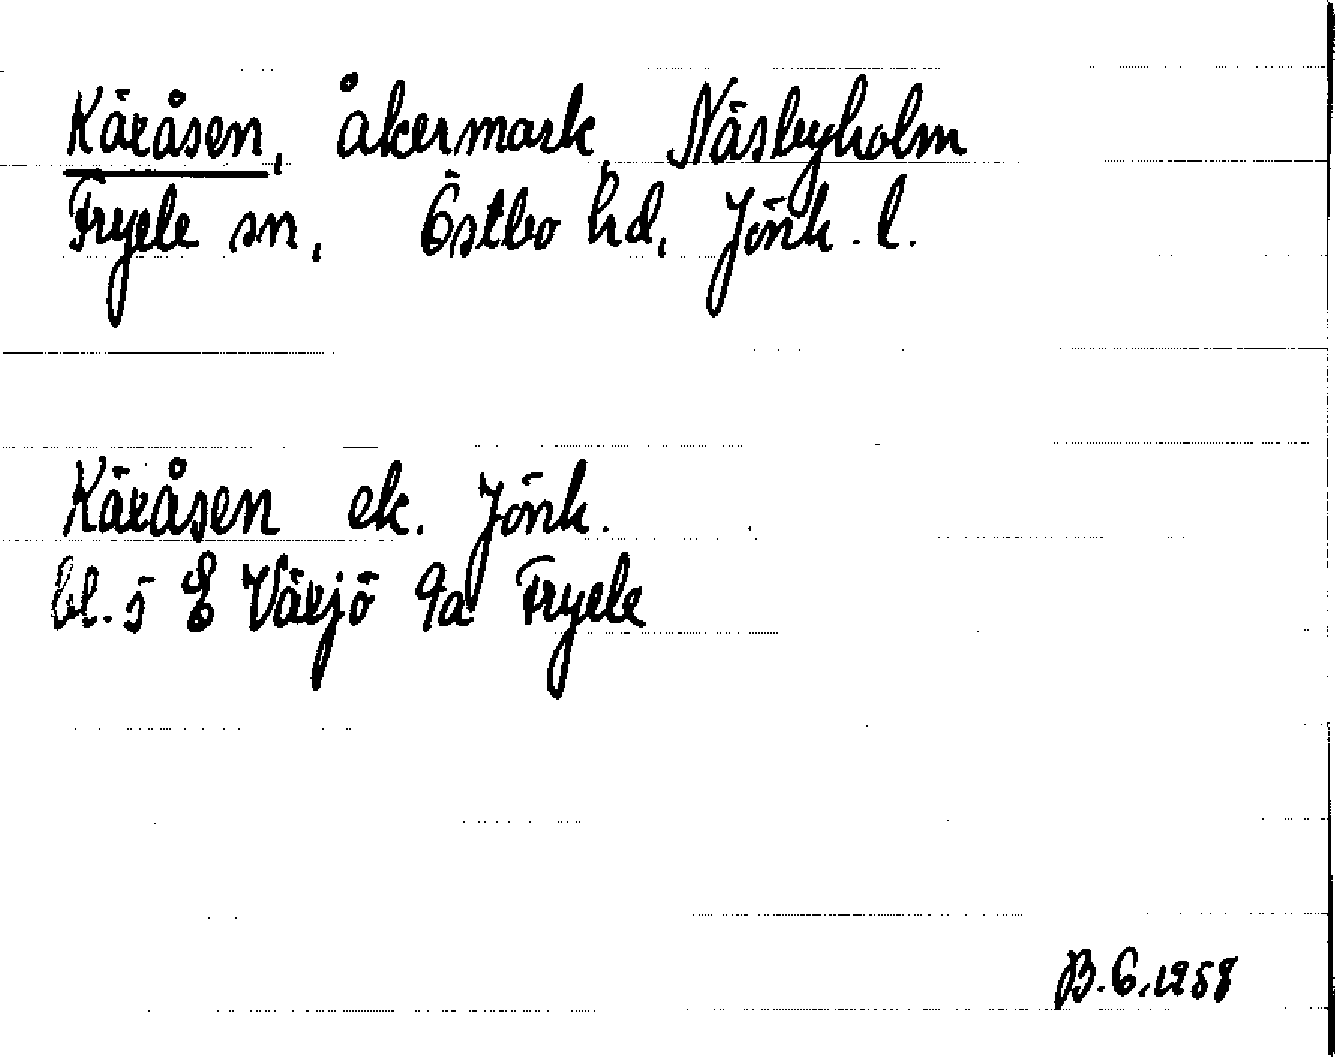 Käråsen, åkermark, Näsbyholm
Fryele sn, Östbo hd, Jönk. l.
Käråsen ek. Jönk.
bl. 5 E Växjö 9a Fryele
B.G. 1958